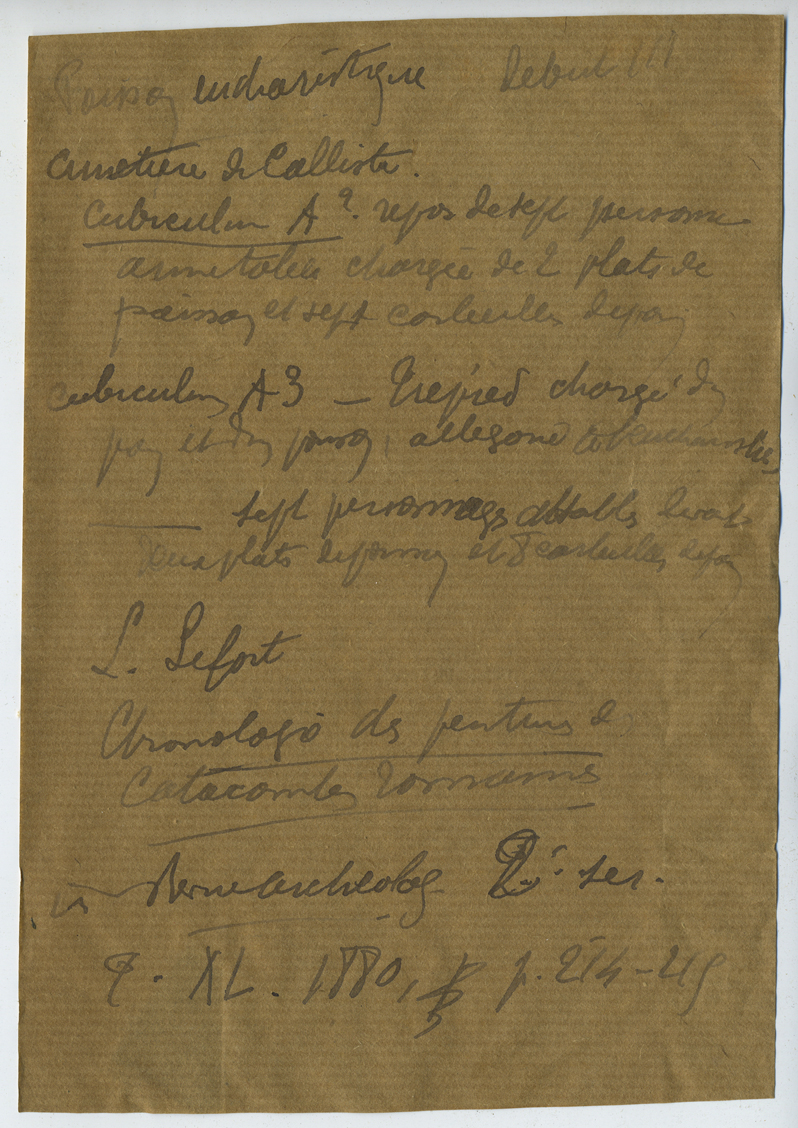 Poisson eucharistique Debut III
Cimetière de Calliste.
Cubiculum A². repas de sept personnes
chargée de 2 plats de
poisson et sept corbeilles de pain
cubiculum A3 — Trépied chargé d'un
pain et d'un poisson, allégorie
——— sept personnages attablés devant
deux plats de poisson et 8 corbeilles de pain
L. Lefort
Chronologie des peintures des
Catacombes romaines
Revue archéolog. 2e. ser.
T. XL. 1880, p. 214-